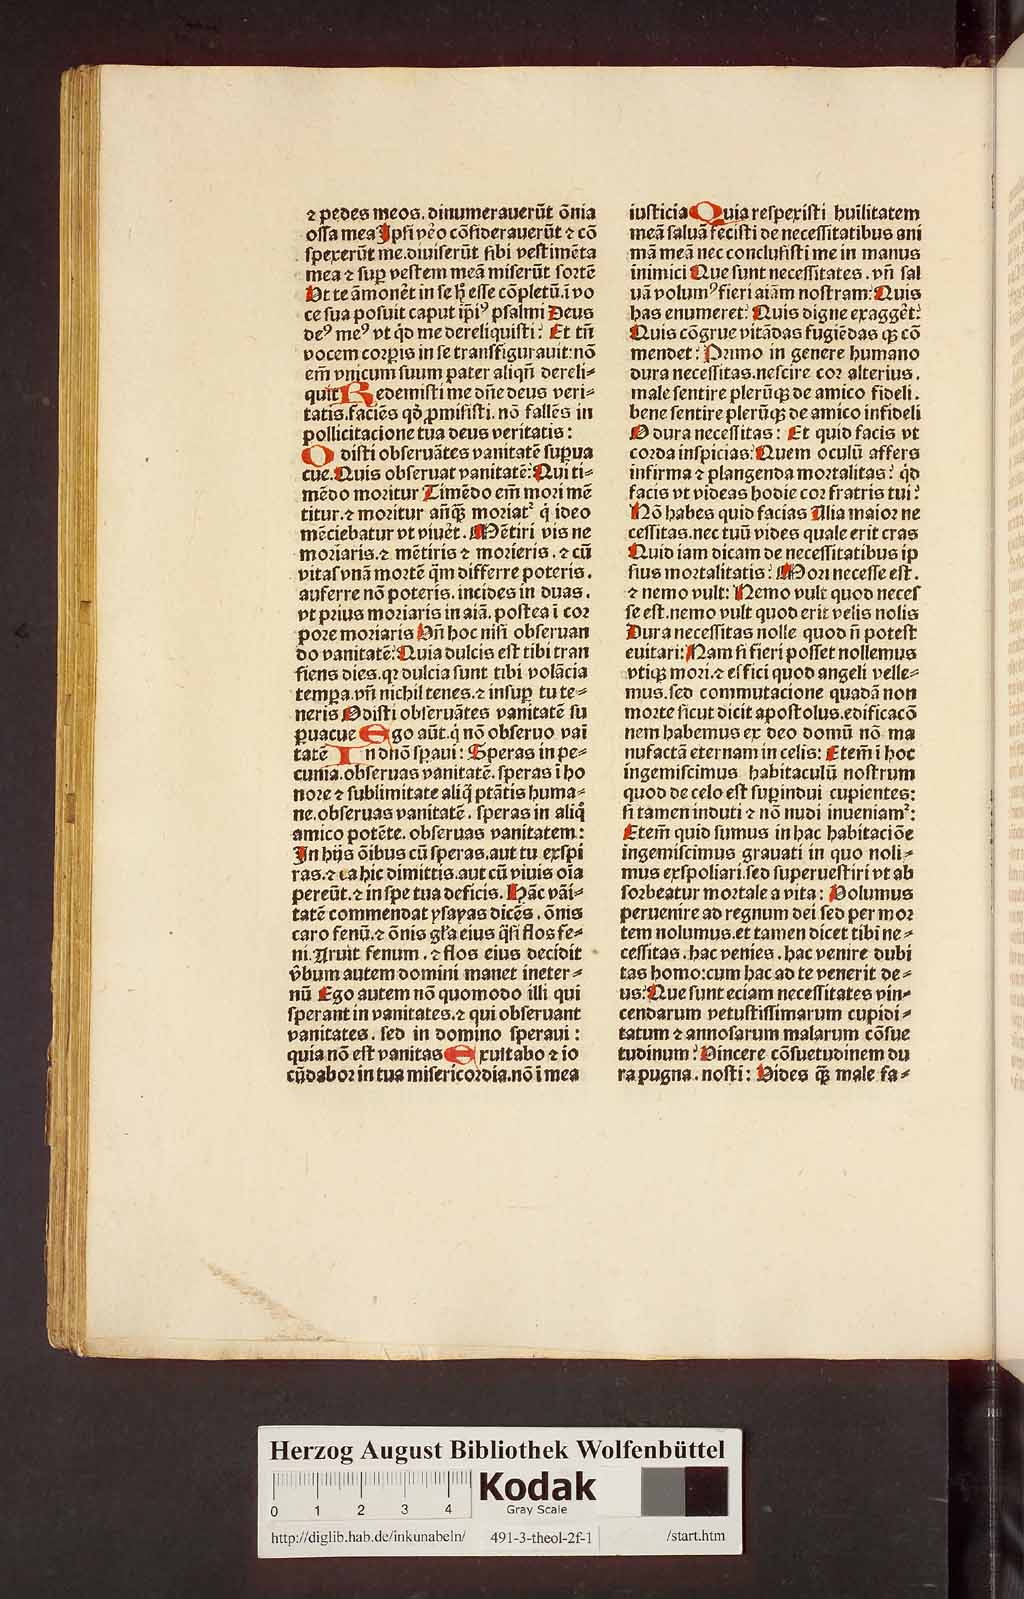 ⁊ pedes meos. dinumerauerūt ōnia
ossa mea Ipsi v̓o cōsiderauerūt ⁊ cō
spexerūt me. diuiserūt sibi vestimēta
mea ⁊ suꝑ vestem meā miserūt sortē
Ut te āmonēt in se hͦ esse cōpletū. ī vo
ce sua posuit caput ip̄iꝰ psalmi Deus
deꝰ meꝰ vt q̇d me dereliquisti: Et tn̄
vocem corꝑis in se transfigurauit: nō
em̄ vnicum suum pater aliqn̄ dereli⸗
quit Redemisti me dn̄e deus veri⸗
tatis. faciēs qd̓ ꝓmisisti. nō fallēs in
pollicitacione tua deus veritatis:
Odisti obseruātes vanitatē suꝑua
cue. Quis obseruat vanitatē: Qui ti⸗
mēdo moritur Timēdo em̄ mori mē
titur. ⁊ moritur an̄qꝫ moriat᷑ q̇ ideo
mēciebatur vt viuēt. Mētiri vis ne
moriaris. ⁊ mētiris ⁊ morieris. ⁊ cū
vitas vnā mortē q̄m differre poteris.
auferre nō poteris. incides in duas.
vt prius moriaris in aīā. postea ī cor
pore moriaris Vn̄ hoc nisi obseruan
do vanitatē: Quia dulcis est tibi tran
siens dies. qꝛ dulcia sunt tibi volācia
temꝑa. vn̄ nichil tenes. ⁊ insuꝑ tu te⸗
neris Odisti obseruātes vanitatē su
ꝑuacue Ego aūt. q̇ nō obseruo vai
tatē In dn̄o sꝑaui: Speras in pe⸗
cunia. obseruas vanitatē. speras ī ho
nore ⁊ sublimitate aliq̇ ptātis huma⸗
ne. obseruas vanitatē. speras in aliq̇
amico potēte. obseruas vanitatem:
In hijs ōibus cū speras. aut tu exspi
ras. ⁊ ea hic dimittis. aut cū viuis oīa
pereūt. ⁊ in spe tua deficis. Hāc vāi⸗
tatē commendat ysayas dicēs. ōnis
caro fenū. ⁊ ōnis gl̄a eius q̇si flos fe⸗
ni. Aruit fenum. ⁊ flos eius decidit
v̓bum autem domini manet ineter⸗
nū Ego autem nō quomodo illi qui
sperant in vanitates. ⁊ qui obseruant
vanitates. sed in domino speraui:
quia nō est vanitas Exultabo ⁊ io
cūdabor in tua misericordia. nō ī mea
iusticia Quia respexisti hūilitatem
meā saluā fecisti de necessitatibus ani
mā meā nec conclusisti me in manus
inimici Que sunt necessitates. vn̄ sal
uā volumꝰ fieri aīam nostram: Quis
has enumeret: Quis digne exaggēt:
Quis cōgrue vitādas fugiēdas qꝫ cō
mendet: Primo in genere humano
dura necessitas. nescire cor alterius.
male sentire plerūqꝫ de amico fideli.
bene sentire plerūqꝫ de amico infideli
O dura necessitas: Et quid facis vt
corda inspicias: Quem oculū affers
infirma ⁊ plangenda mortalitas: q̇d
facis vt videas hodie cor fratris tui:
Nō habes quid facias Alia maior ne
cessitas. nec tuū vides quale erit cras
Quid iam dicam de necessitatibus ip
sius mortalitatis: Mori necesse est.
⁊ nemo vult: Nemo vult quod neces
se est. nemo vult quod erit velis nolis
Dura necessitas nolle quod n̄ potest
euitari: Nam si fieri posset nollemus
vtiqꝫ mori. ⁊ effici quod angeli velle⸗
mus. sed commutacione quadā non
morte sicut dicit apostolus. edificacō
nem habemus ex deo domū nō ma
nufactā eternam in celis: Etem̄ ī hoc
ingemiscimus habitaculū nostrum
quod de celo est suꝑindui cupientes:
si tamen induti ⁊ nō nudi inueniam᷑:
Etem̄ quid sumus in hac habitaciōe
ingemiscimus grauati in quo noli⸗
mus exspoliari. sed superuestiri vt ab
sorbeatur mortale a vita: Volumus
peruenire ad regnum dei sed per mor
tem nolumus. et tamen dicet tibi ne⸗
cessitas. hac venies. hac venire dubi
tas homo: cum hac ad te venerit de⸗
us: Que sunt eciam necessitates vin⸗
cendarum vetustissimarum cupidi⸗
tatum ⁊ annosarum malarum cōsue
tudinum: Vincere cōsuetudinem du
ra pugna. nosti: Vides qꝫ male fa⸗
Herzog August Bibliothek Wolfenbüttel
0 1 2 3 4
Kodak
Gray Scale
http://diglib.hab.de/inkunabeln/ 491-3-theol-2f-1 /start.htm